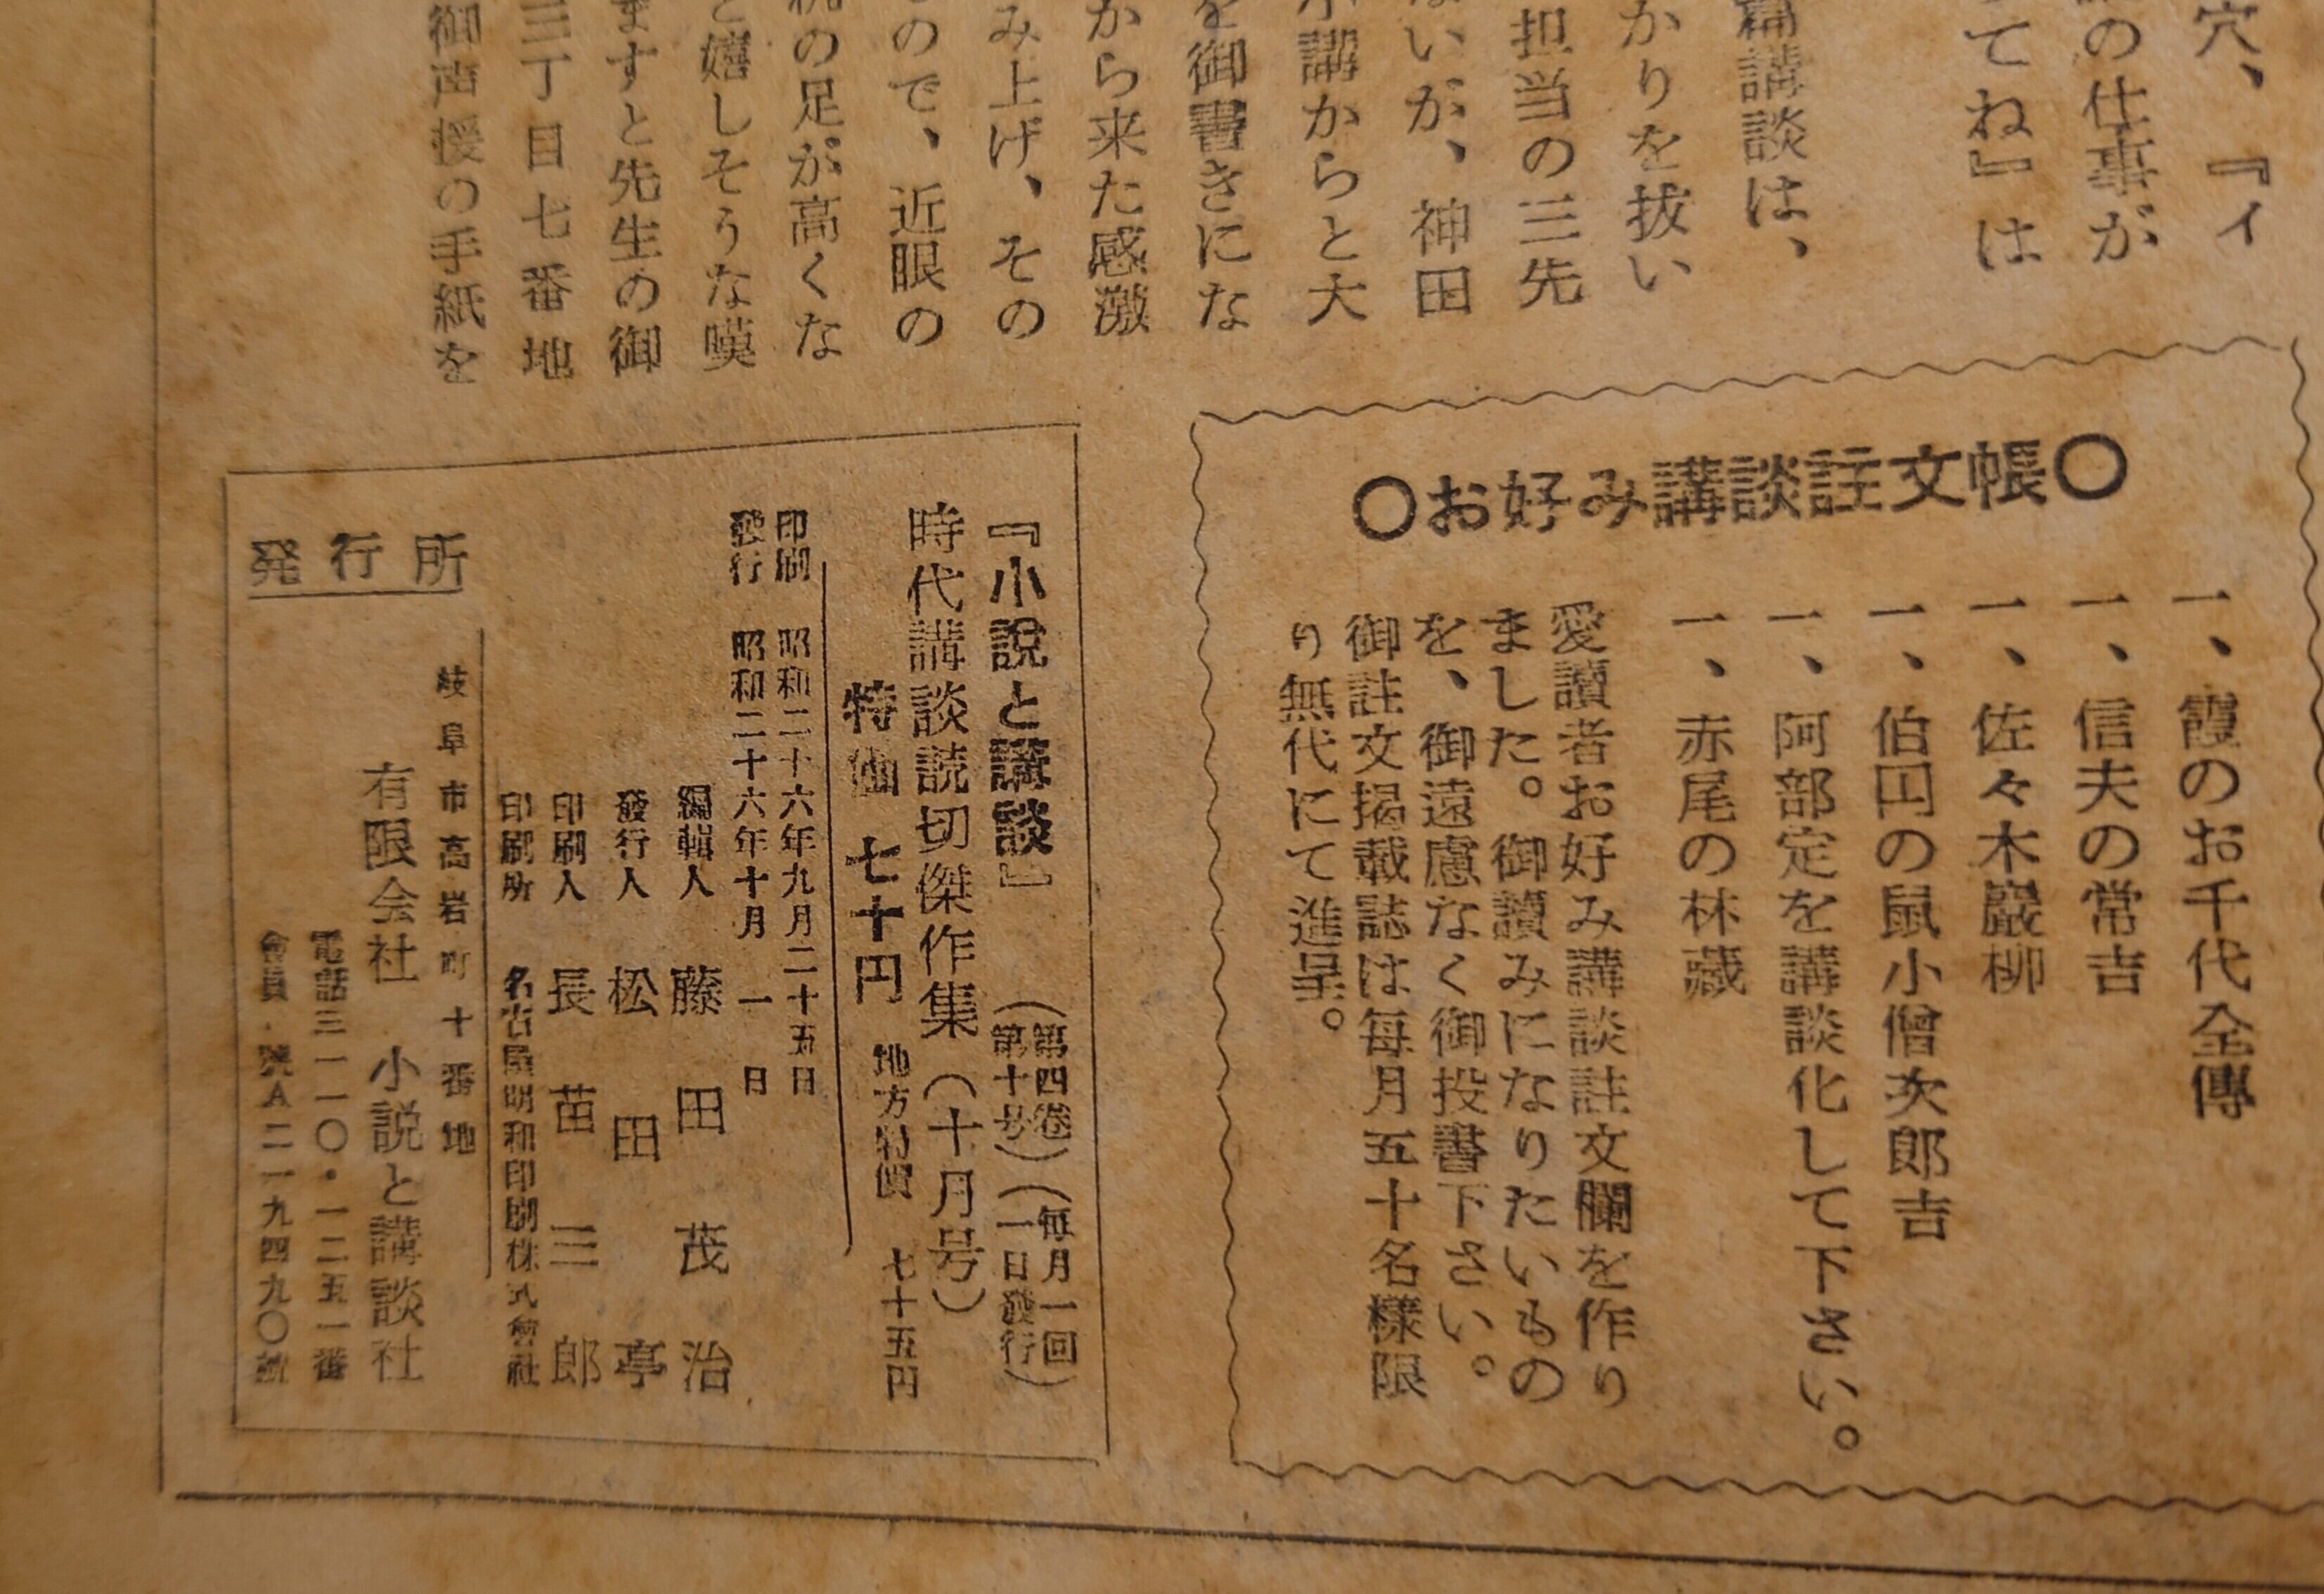 穴、『ィ
の仕事が
てね』は
篇講談は、
かりを抜い
担当の三先
ないが、神田
小講からと大
を御書きにな
から来た感激
み上げ、その
ので、近眼の
机の足が高くな
と嬉しそうな嘆
ますと先生の御
三丁目七番地
御声援の手紙を
〇お好み講談註文帳〇
一、霞のお千代全傳
一、信夫の常吉
一、佐々木巖柳
一、伯円の鼠小僧次郎吉
一、阿部定を講談化して下さい。
一、赤尾の林蔵
愛讀者お好み講談註文欄を作り
ました。御讀みになりたいもの
を、御遠慮なく御投書下さい。
御註文掲載誌は毎月五十名様限
り無代にて進呈。
『小說と講談』（第四卷 第十号）（毎月一回 一日發行）
時代講談読切傑作集（十月号）
特価 七十円 地方特價 七十五円
印刷 昭和二十六年九月二十五日
發行 昭和二十六年十月 一 日
編輯人 藤田茂治
發行人 松田亭
印刷人 長苗三郎
印刷所 名古屋明和印刷株式會社
岐阜市高岩町十番地
発行所 有限会社 小説と講談社
電話三一一〇・一二五一番
會員・號A二一九四九〇